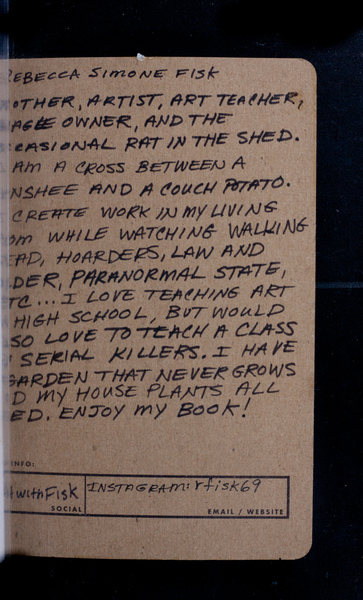 REBECCA SIMONE FISK
MOTHER, ARTIST, ART TEACHER,
EAGLE OWNER, AND THE
OCCASIONAL RAT IN THE SHED.
I AM A CROSS BETWEEN A
BANSHEE AND A COUCH POTATO.
I CREATE WORK IN MY LIVING
ROOM WHILE WATCHING WALKING
DEAD, HOARDERS, LAW AND
ORDER, PARANORMAL STATE,
ETC... I LOVE TEACHING ART
IN HIGH SCHOOL, BUT WOULD
ALSO LOVE TO TEACH A CLASS
ON SERIAL KILLERS. I HAVE
A GARDEN THAT NEVER GROWS
AND MY HOUSE PLANTS ALL
DIED. ENJOY MY BOOK!
INFO:
withFisk INSTAGRAM: rfisk69
SOCIAL EMAIL / WEBSITE